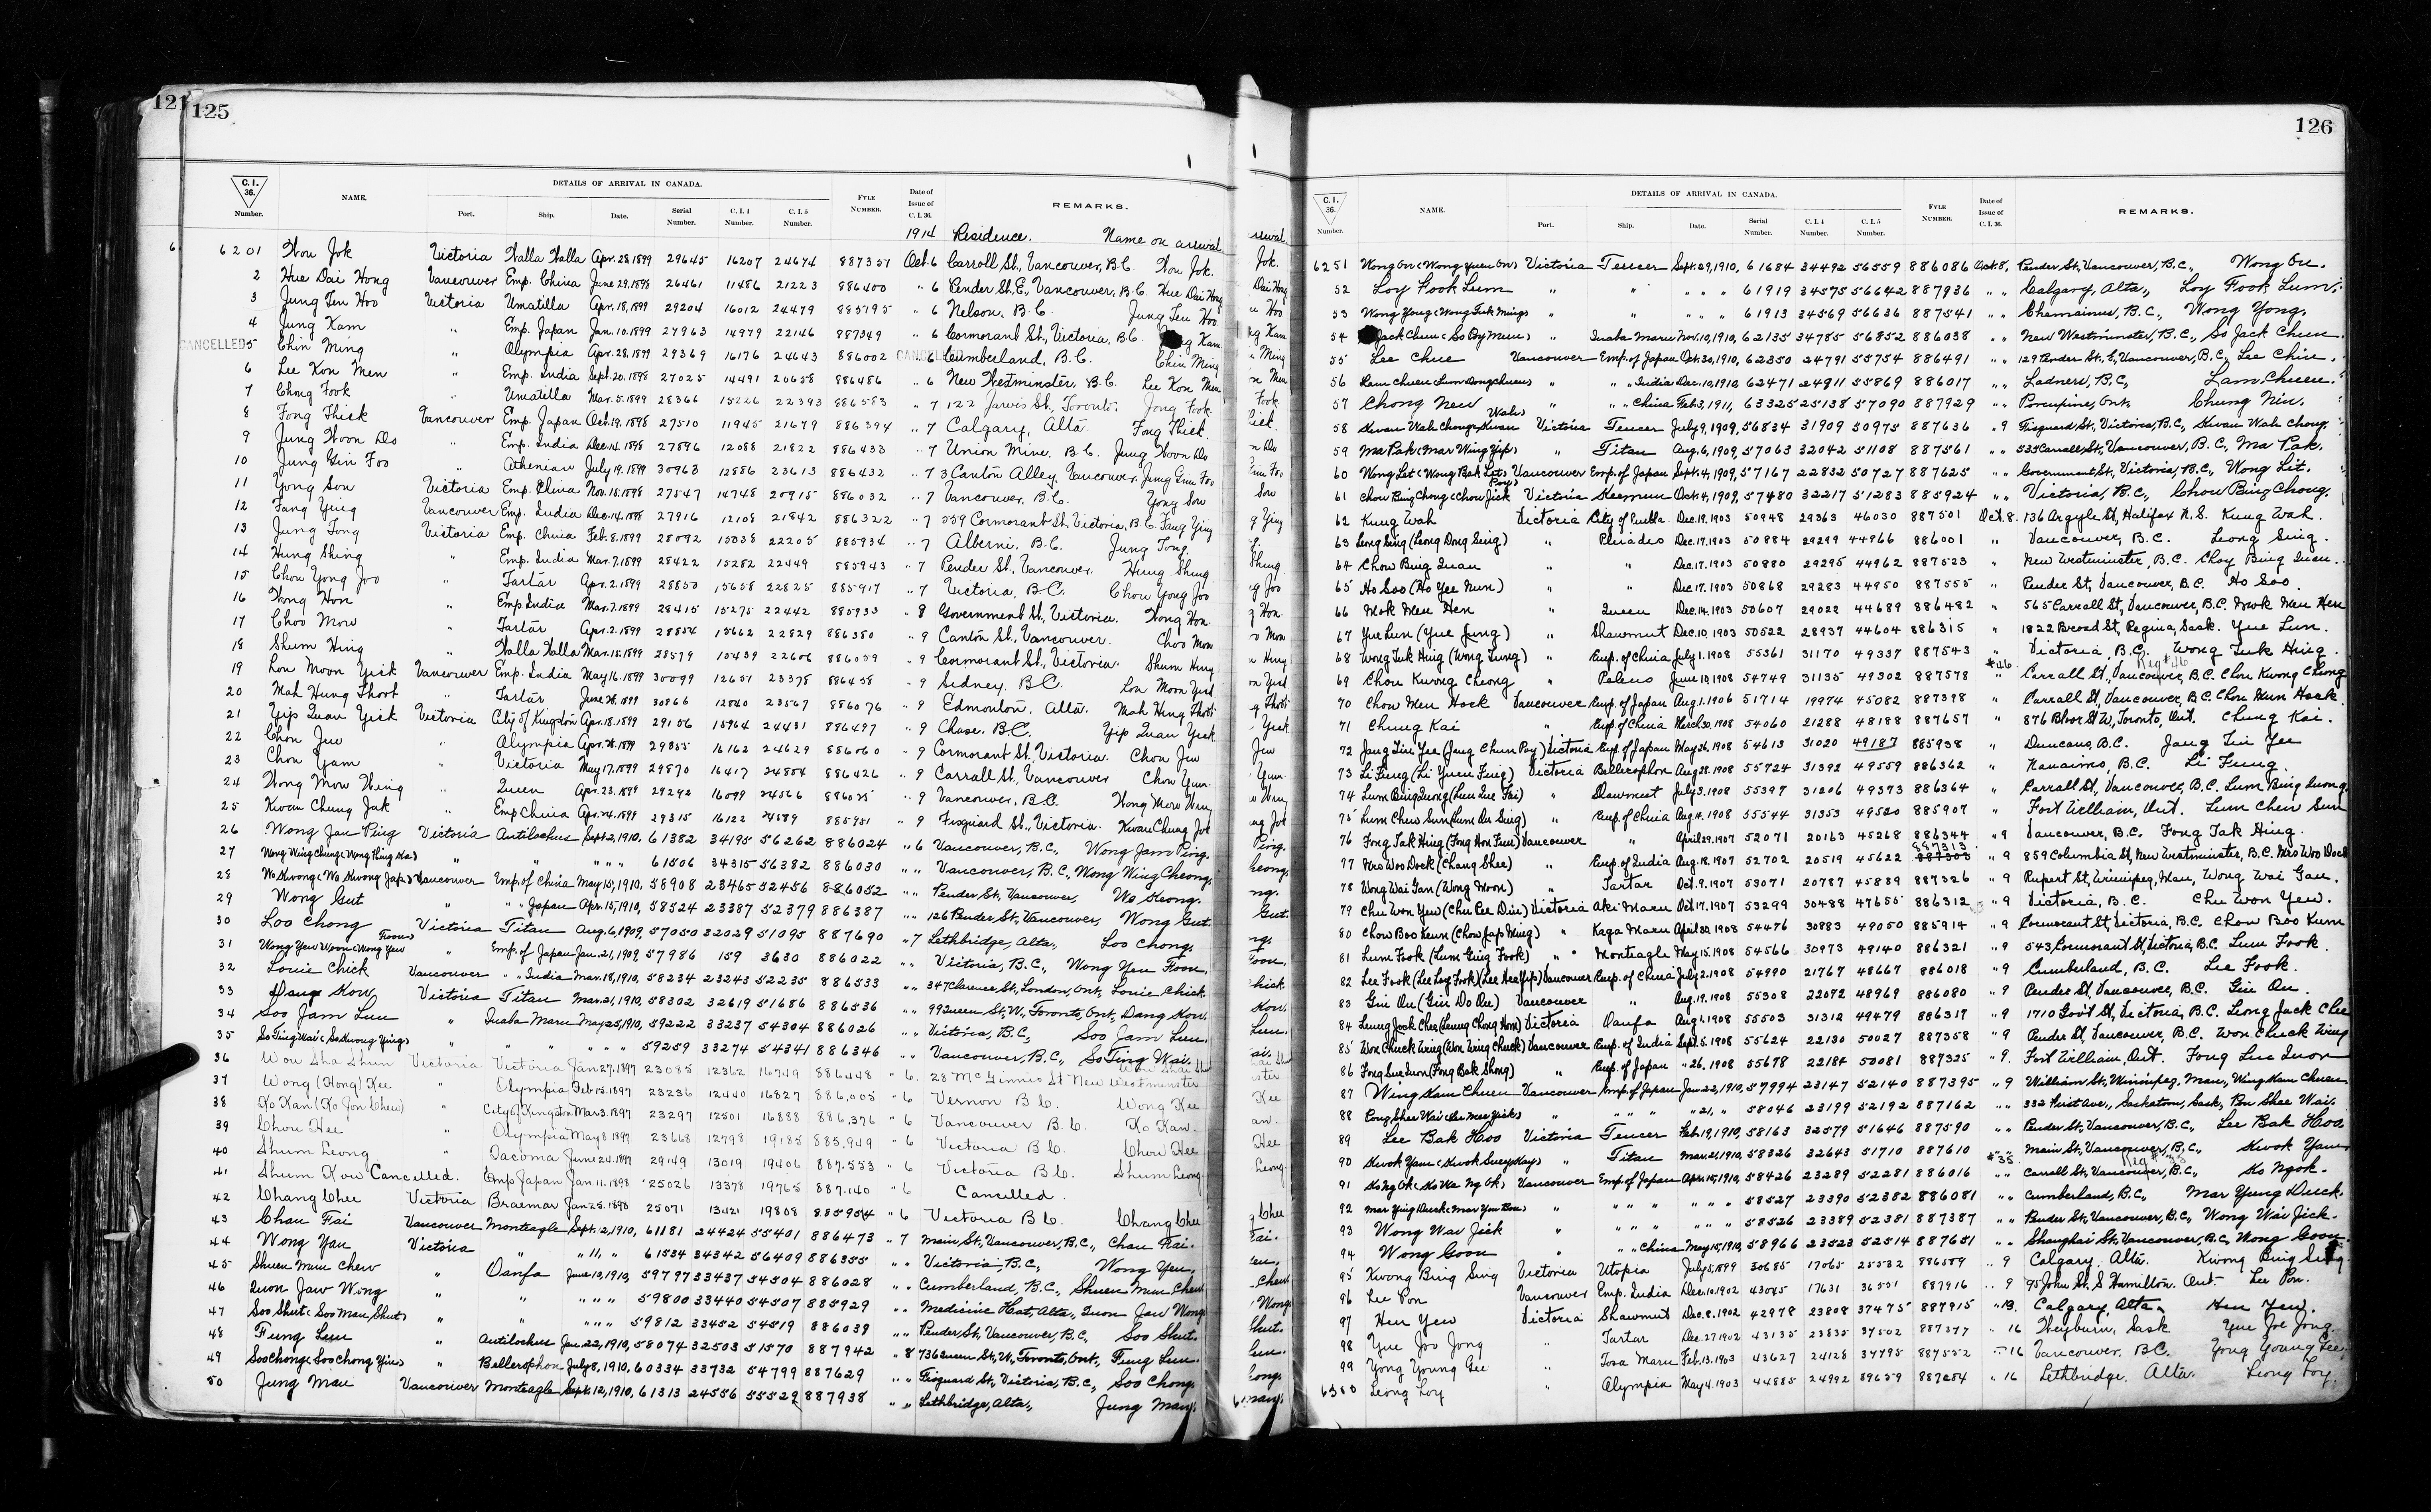 121 125
C.I. 36. Number. NAME. DETAILS OF ARRIVAL IN CANADA. Port. Ship. Date. Serial Number. C.I.4 Number. C.I.5 Number. FYLE NUMBER. Date of Issue of C.I.36. REMARKS.
1914 Residence. Name on arrival
6201 Wou Jok Victoria Walla Walla Apr. 28, 1899 29645 16207 24674 887351 Oct. 6 Carroll St., Vancouver, B.C. Wou Jok.
2 Hue Dai Hong Vancouver Emp. China June 29, 1898 26461 11486 21223 886400 " 6 Pender St. E., Vancouver, B.C. Hue Dai Hong
3 Jung Ten Hoo Victoria Umatilla Apr. 18, 1899 29204 16012 24479 885795 " 6 Nelson, B.C. Jung Ten Hoo
4 Jung Kam " Emp. Japan Jan. 10, 1899 27963 14979 22146 887349 " 6 Cormorant St., Victoria, B.C. Kam
CANCELLED 5 Chin Ming " Olympia Apr. 28, 1899 29369 16176 24643 886002 " 6 Cumberland, B.C. Chin Ming
6 Lee Kon Men " Emp. India Sept. 20, 1898 27025 14491 20658 886486 " 6 New Westminster, B.C. Lee Kon Men
7 Chong Fook " Umatilla Mar. 5, 1899 28366 15226 22393 886583 " 7 122 Jarvis St., Toronto. Jong Fook.
8 Fong Thick Vancouver Emp. Japan Oct. 19, 1898 27510 11945 21679 886394 " 7 Calgary, Alta. Fong Thick
9 Jung Woon Do " Emp. India Dec. 14, 1898 27896 12088 21822 886433 " 7 Union Mine, B.C. Jung Woon Do
10 Jung Gin Foo " Athenian July 19, 1899 30963 12886 23613 886432 " 7 3 Canton Alley, Vancouver. Jung Gin Foo
11 Yong Son Victoria Emp. China Nov. 15, 1898 27547 14748 20915 886032 " 7 Vancouver, B.C. Yong Son
12 Fang Ying Vancouver Emp. India Dec. 14, 1898 27916 12108 21842 886322 " 7 539 Cormorant St, Victoria, B.C. Fang Ying
13 Jung Tong Victoria Emp. China Feb. 8, 1899 28092 15038 22205 885934 " 7 Alberni, B.C. Jung Tong
14 Hung Shing " Emp. India Mar. 7, 1899 28422 15282 22449 885943 " 7 Pender St., Vancouver. Hung Shing
15 Chou Yong Joo " Tartar Apr. 2, 1899 28850 15658 22825 885917 " 7 Victoria, B.C. Chou Yong Joo
16 Wong Hon " Emp India Mar. 7, 1899 28415 15275 22442 885933 " 8 Government St., Victoria. Wong Hon.
17 Choo Mow " Tartar Apr. 2, 1899 28854 15662 22829 886380 " 9 Canton St., Vancouver. Choo Mon
18 Shum Hing " Walla Walla Mar. 15, 1899 28579 15439 22606 886059 " 9 Cormorant St., Victoria. Shum Hing
19 Lon Moon Yick Vancouver Emp. India May 16, 1899 30099 12651 23378 886438 " 9 Sidney, B.C. Lon Moon Yick
20 Mah Hung Thoot " Tartar June 28, 1899 30866 12840 23567 886076 " 9 Edmonton, Alta. Mah Hing Thoti
21 Yip Quan Yick Victoria City of Kingston Apr. 18, 1899 29156 15964 24431 886497 " 9 Chase, B.C. Yip Quan Yick
22 Chon Jew " Olympia Apr. 28, 1899 29355 16162 24629 886060 " 9 Cormorant St., Victoria. Chon Jew
23 Chon Yam " Victoria May 17, 1899 29870 16417 24884 886426 " 9 Carrall St., Vancouver Chon Yun.
24 Wong Mow Wing " Queen Apr. 23, 1899 29292 16099 24566 886025 " 9 Vancouver, B.C. Wong Mow Wing
25 Kwan Chung Jak " Emp China Apr. 24, 1899 29315 16122 24589 885951 " 9 Fisguard St., Victoria. Kwan Chung Jok
26 Wong Jan Ping Victoria Antilochus Sept. 2, 1910, 61382 34195 56262 886024 " 6 Vancouver, B.C., Wong Jam Ping.
27 Wong Wing Chung " " " " " 61506 34315 56382 886030 " " Vancouver, B.C, Wong Wing Cheong.
28 We Kwong (We Kwong Jap) Vancouver Emp. of China May 15, 1910, 58908 23465 52456 886052 " " Pender St, Vancouver, We Keong.
29 Wong Gut " " " Japan Apr. 15, 1910, 58524 23387 52379 886387 " " 126 Pender St, Vancouver, Wong Gut.
30 Loo Chong Victoria Titan Aug. 6, 1909, 57050 32029 51095 887690 " 7 Lethbridge, Alta, Loo Chong.
31 Wong Yew Woon (Wong Yew Foon) " Emp. of Japan Jan. 21, 1909, 57986 159 3630 886022 " " Victoria, B.C., Wong Yew Foon.
32 Louie Chick Vancouver " " India Mar. 18, 1910, 58234 23243 52235 886533 " " 347 Clarence St, London, Ont, Louie Chick
33 Dang Kow Victoria Titan Mar. 21, 1910, 58302 32619 51686 886536 " " 992 Queen St, W, Toronto, Ont, Dang Kow.
34 Soo Jam Lun " Inaba Maru May 25, 1910, 59222 33237 54304 886026 " " Victoria, B.C., Soo Jam Lun.
35 So Ting Wai (So Kwong Ying) " " " " " 59259 33274 54341 886346 " " Vancouver, B.C., So Ting Wai.
36 Wou Sha Shun Victoria Victoria Jan 27, 1897 23085 12362 16749 886448 " 6. 28 McGinnis St New Westminster
37 Wong (Hong) Kee " Olympia Feb 15, 1897 23236 12440 16827 886,005 " 6 Vernon B.C. Wong Kee
38 Ko Kan (Ko Jon Chew) " City of Kingston Mar 3, 1897 23297 12501 16888 886,376 " 6 Vancouver B.C. Ko Kan.
39 Chou Hee " Olympia May 8 1897 23668 12798 19185 885,949 " 6 Victoria B.C. Chou Hee
40 Shum Leong " Tacoma June 24, 1897 29149 13019 19406 887,553 " 6 Victoria B.C. Shum Leong
41 Shum Kow Cancelled. Emp Japan Jan 11, 1898 25026 13378 19765 887,140 " 6 Cancelled.
42 Chang Chee Victoria Braemar Jan 25, 1898 25071 13421 19808 885954 " 6 Victoria B.C. Chang Chee
43 Chau Tai Vancouver Monteagle Sept. 12, 1910, 61181 24424 55401 886473 " 7 Main St, Vancouver, B.C., Chau Tai.
44 Wong Yau Victoria " " 11, " 61534 34342 56409 886355 " " Victoria, B.C., Wong Yeu,
45 Shuen Mun Chew " Oanfa June 13, 1910, 59797 33437 54504 886028 " " Cumberland, B.C., Shuen Mun Chew
46 Quon Jaw Wing " " " " " 59800 33440 54507 885929 " " Medicine Hat, Alta, Quon Jaw Wong
47 Soo Shut (Soo Man Shut) " " " " " 59812 33452 54519 886039 " " Pender St, Vancouver, B.C., Soo Shut.
48 Fung Lun " Antilochus Jan. 22, 1910, 58074 32503 51570 887942 " 8 736 Queen St, W, Toronto, Ont., Fung Lun.
49 Soo Chong (Soo Chong Yin) " Bellerophon July 8, 1910, 60334 33732 54799 887629 " " Fisguard St, Victoria, B.C., Soo Chong.
50 Jung Mau Vancouver Monteagle Sept. 12, 1910, 61313 24556 55529 887938 " " Lethbridge, Alta, Jung Man.
126
C.I. 36. Number. NAME. DETAILS OF ARRIVAL IN CANADA. Port. Ship. Date. Serial Number. C.I.4 Number. C.I.5 Number. FYLE NUMBER. Date of Issue of C.I.36. REMARKS.
6251 Wong On (Wong Yuen On) Victoria Teucer Sept. 29, 1910, 61684 34492 56559 886086 Oct. 8, Pender St, Vancouver, B.C., Wong On.
52 Loy Fook Lum " " " " " 61919 34575 56642 887936 " " Calgary, Alta., Loy Fook Lum.
53 Wong Yong (Wong Tuk Ming) " " " " " 61913 34569 56636 887541 " " Chemainus, B.C., Wong Yong.
54 Jack Chun (So By Mun) " Inaba Maru Nov. 10, 1910, 62135 34785 56852 886038 " " New Westminster, B.C., So Jack Chun.
55 Lee Chue Vancouver Emp. of Japan Oct. 30, 1910, 62350 24791 55754 886491 " " 129 Pender St, E, Vancouver, B.C., Lee Chin.
56 Lam Chuen (Lum Dong Chuen) " " " India Dec. 10, 1910, 62471 24911 55869 886017 " " Ladners, B.C, Lam Chuen.
57 Chong New " " " China Feb. 3, 1911, 63325 25138 57090 887929 " " Porcupine, Ont. Chung Niu.
58 Kwan Wah Chong (Kwan Wah) Victoria Teucer July 9, 1909, 56834 31909 50975 887636 " 9 Fisguard St, Victoria, B.C., Kwan Wah Chong.
59 Ma Pak (Mar Wing Yip) " Titan Aug. 6, 1909, 57063 32042 51108 887561 " " 535 Carrall St, Vancouver, B.C, Ma Pak.
60 Wong Lit (Wong Bak Let) Vancouver Emp. of Japan Sept. 4, 1909, 57167 22832 50727 887625 " " Government St, Victoria, B.C., Wong Lit.
61 Chow Bing Chong (Chow Jick Poy) Victoria Keemun Oct. 4, 1909, 57480 32217 51283 885924 " " Victoria, B.C., Chow Bing Chong.
62 Kung Wah Victoria City of Puebla Dec. 19, 1903 50948 29363 46030 887501 Oct. 8. 136 Argyle St, Halifax N.S. Kung Wah.
63 Leong Sing (Leong Dong Sing) " Pleiades Dec. 17, 1903 50884 29299 44966 886001 " Vancouver, B.C. Leong Sing.
64 Chow Bing Quan " " Dec. 17, 1903 50880 29295 44962 887523 " New Westminster, B.C. Choy Bing Quen.
65 Ho Soo (Ho Yee Nun) " " Dec. 17, 1903 50868 29283 44950 887555 " Pender St, Vancouver, B.C. Ho Soo.
66 Mok Men Hen " Queen Dec. 14, 1903 50607 29022 44689 886482 " 565 Carrall St, Vancouver, B.C. Mok Men Hen
67 Yue Lun (Yue Jung) " Shawmut Dec. 10, 1903 50522 28937 44604 886315 " 1822 Broad St, Regina, Sask. Yue Lun.
68 Wong Tuk Hing (Wong Tung) " Emp. of China July 1, 1908 55361 31170 49337 887543 " Victoria, B.C. Wong Tuk Hing.
#46 Reg #46
69 Chou Kwong Cheong " Peleus June 10, 1908 54749 31135 49302 887578 " Carrall St, Vancouver, B.C. Chou Kwong Cheong
70 Chow Men Hock Vancouver Emp. of Japan Aug. 1, 1906 51714 19974 45082 887398 " Carrall St, Vancouver, B.C. Chou Mun Hock
71 Chung Kai " Emp. of China March 30, 1908 54060 21288 48188 887657 " 876 Bloor St W, Toronto, Ont. Chung Kai.
72 Jang Tin Yee (Jang Chun Poy) Victoria Emp. of Japan May 26, 1908 54613 31020 49187 885938 " Duncans, B.C. Jang Tin Yee
73 Li Fung (Li Yuen Fung) Victoria Bellerophon Aug 28, 1908 55724 31392 49559 886362 " Nanaimo, B.C. Li Fung.
74 Lum Bing Quong (Lum Que Tai) " Shawmut July 3, 1908 55397 31206 49373 886364 " Carrall St, Vancouver, B.C. Lum Bing Quong
75 Lum Chew Sun (Lum Der Sing) " Emp. of China Aug. 4, 1908 55544 31353 49520 885907 " Fort William, Ont. Lum Chew Sun
76 Fong Tak Hing (Fong Hon Fun) Vancouver " April 29, 1907 52071 20163 45268 886344 " 9 Vancouver, B.C. Fong Tak Hing.
887313
77 Mrs Woo Dock (Chang Shee) " Emp. of India Aug. 18, 1907 52702 20519 45622 887303 " 9 859 Columbia St, New Westminster, B.C. Mrs Woo Dock
78 Wong Wai Gan (Wong Moon) " Tartar Oct. 9, 1907 53071 20787 45889 887326 " 9 Rupert St, Winnipeg, Man, Wong Wai Gan.
79 Chu Won Yew (Chu Pee Din) Victoria Aki Maru Oct 17, 1907 53299 30488 47655 886312 " 9 Victoria, B.C. Chu Won Yew.
80 Chow Boo Keun (Chow Jap Ming) " Kaga Maru April 30, 1908 54476 30883 49050 885914 " 9 Cormorant St, Victoria, B.C. Chow Boo Kum
81 Lum Fook (Lum Ging Fook) " Monteagle May 15, 1908 54566 30973 49140 886321 " 9 543 Cormorant St, Victoria, B.C. Lum Fook.
82 Lee Fook (Lee Loy Fook) (Lee Hee Yip) Vancouver Emp. of China July 2, 1908 54990 21767 48667 886018 " 9 Cumberland, B.C. Lee Fook.
83 Gin On (Gin Do On) Vancouver " Aug. 19, 1908 55308 22072 48969 886080 " 9 Pender St, Vancouver, B.C. Gin On.
84 Leung Jock Chee (Leung Chong Hom) Victoria Oanfa Aug 1, 1908 55503 31312 49479 886317 " 9 1710 Govt St, Victoria, B.C. Leong Jack Chee
85 Won Chuck Wing (Won Wing Chuck) Vancouver Emp. of India Sept. 5, 1908 55624 22130 50027 887358 " 9 Pender St, Vancouver, B.C. Won Chuck Wing
86 Fong Sue Suon (Fong Bak Shong) " Emp. of Japan " 26, 1908 55678 22184 50081 887325 " 9. Fort William, Ont. Fong Lue Suon
87 Wing Kam Chuen Vancouver Emp. of Japan Jan. 22, 1910, 57994 23147 52140 887395 " 9 William St, Winnipeg, Man., Wing Kam Chuen
88 Pong Shee Wai (Lee Mee Yick) " " " " " 21, " 58046 23199 52192 887162 " " 332 First Ave., Saskatoon, Sask, Pon Shee Wai.
89 Lee Bak Hoo Victoria Teucer Feb. 19, 1910, 58163 32579 51646 887590 " " Pender St, Vancouver, B.C., Lee Bak Hoo.
90 Kwok Yam (Kwok Suey Kay) " Titan Mar. 21, 1910, 58326 32643 51710 887610 " " Main St, Vancouver, B.C., Kwok Yam
#35 Reg #35
91 Ko Ng Ok (Ko Ka Ng Ok) Vancouver Emp. of Japan Apr. 15, 1910, 58426 23289 52281 886016 " " Carrall St, Vancouver, B.C., Ko Ngok.
92 Mar Ying Duck (Mar You Bon) " " " " " " " 58527 23390 52382 886081 " " Cumberland, B.C., Mar Yung Duck.
93 Wong Wai Jick " " " " " " " 58526 23389 52381 887387 " " Pender St, Vancouver, B.C., Wong Wai Jick.
94 Wong Goon " " " China May 15, 1910, 58966 23523 52514 887651 " " Shanghai St, Vancouver, B.C, Wong Goon.
95 Kwong Bing Sing Victoria Utopia July 5, 1899 30685 17065 25532 886589 " 9 Calgary. Alta. Kwong Bing Sing
96 Lee Pon Vancouver Emp. India Dec. 10, 1902 43045 17631 36551 887916 " 9 95 John St. S Hamilton. Ont. Lee Pon.
97 Hun Yew Victoria Shawmut Dec. 8, 1902 42978 23808 37475 887915 " 13. Calgary, Alta. Hun Yew.
98 Yue Joo Jong " Tartar Dec. 27, 1902 43135 23835 37502 887377 " 16 Weyburn, Sask Yue Joe Jong
99 Yong Young Gee " Tosa Maru Feb. 13, 1903 43627 24128 37795 887552 " 16 Vancouver, B.C. Yong Young Gee.
6300 Leong Loy " Olympia May 4, 1903 44885 24992 39659 887684 " 16 Lethbridge, Alta. Leong Loy